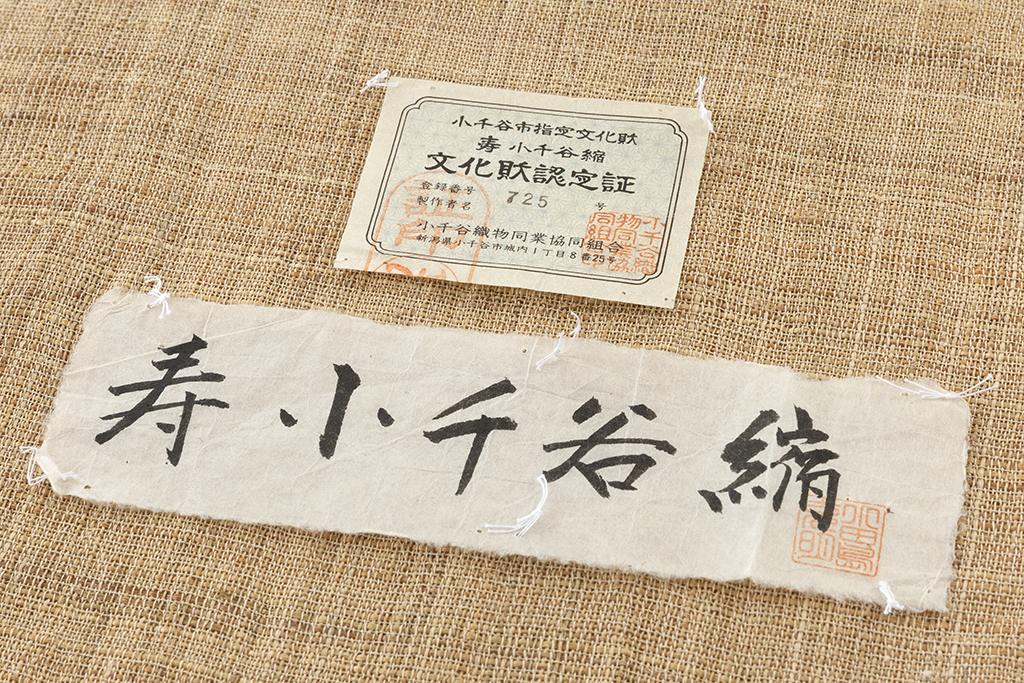 小千谷市指定文化財
寿 小千谷縮
文化財認定証
登録番号 725 号
製作者名
小千谷織物同業協同組合
新潟県小千谷市城内1丁目8番25号
寿小千谷縮